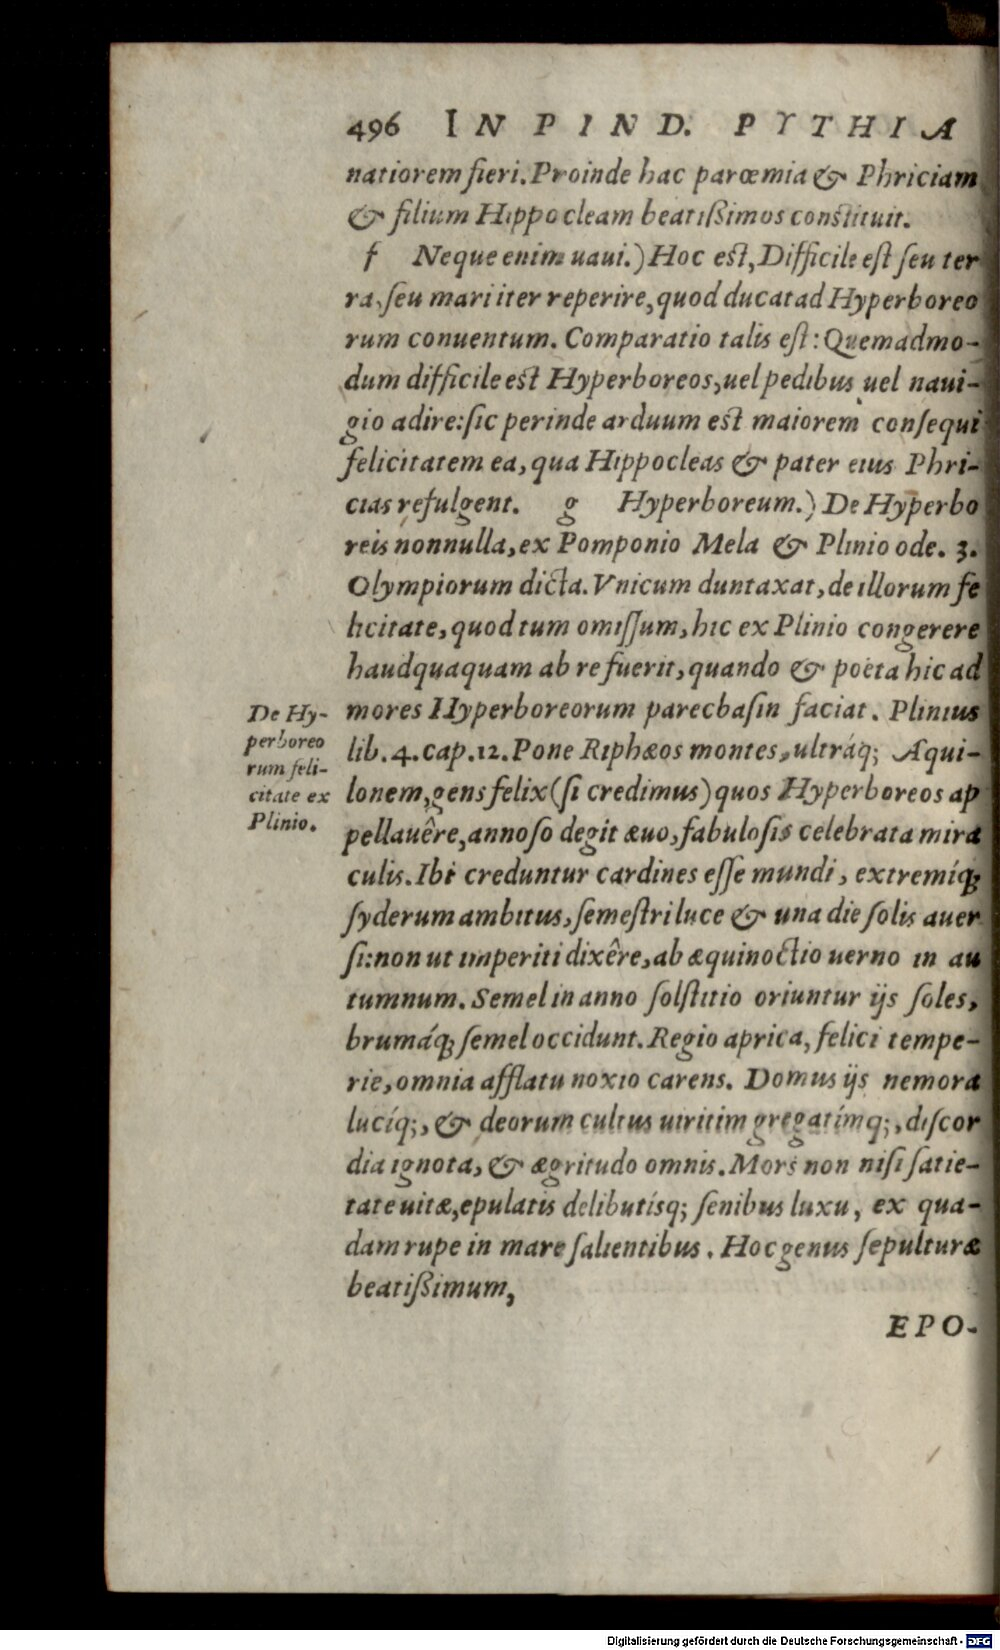 496 IN PIND. PYTHIA
natiorem fieri. Proinde hac parœmia & Phriciam
& filium Hippocleam beatißimos constituit.
f Neque enim naui.) Hoc est, Difficile est seu ter
ra, seu mari iter reperire, quod ducat ad Hyperboreo
rum conuentum. Comparatio talis est: Quemadmo-
dum difficile est Hyperboreos, uel pedibus uel naui-
gio adire: sic perinde arduum est maiorem consequi
felicitatem ea, qua Hippocleas & pater eius Phri-
cias refulgent. g Hyperboreum.) De Hyperbo
reis nonnulla, ex Pomponio Mela & Plinio ode. 3.
Olympiorum dicta. Vnicum duntaxat, de illorum fe
licitate, quod tum omissum, hic ex Plinio congerere
haudquaquam ab re fuerit, quando & poëta hic ad
mores Hyperboreorum parecbasin faciat. Plinius
lib. 4. cap. 12. Pone Riphæos montes, ultráq; Aqui-
lonem, gens felix (si credimus) quos Hyperboreos ap
pellauêre, annoso degit æuo, fabulosis celebrata mira
culis. Ibi creduntur cardines esse mundi, extremíq;
syderum ambitus, semestri luce & una die solis auer
si: non ut imperiti dixêre, ab æquinoctio uerno in au
tumnum. Semel in anno solstitio oriuntur ijs soles,
brumáq; semel occidunt. Regio aprica, felici tempe-
rie, omnia afflatu noxio carens. Domus ijs nemora
lucíq;, & deorum cultus uiritim gregatímq;, discor
dia ignota, & ægritudo omnis. Mors non nisi satie-
tate uitæ, epulatis delibutísq; senibus luxu, ex qua-
dam rupe in mare salientibus. Hoc genus sepulturæ
beatißimum,
EPO-
De Hy-
perboreo
rum feli-
citate ex
Plinio.
Digitalisierung gefördert durch die Deutsche Forschungsgemeinschaft - DFG